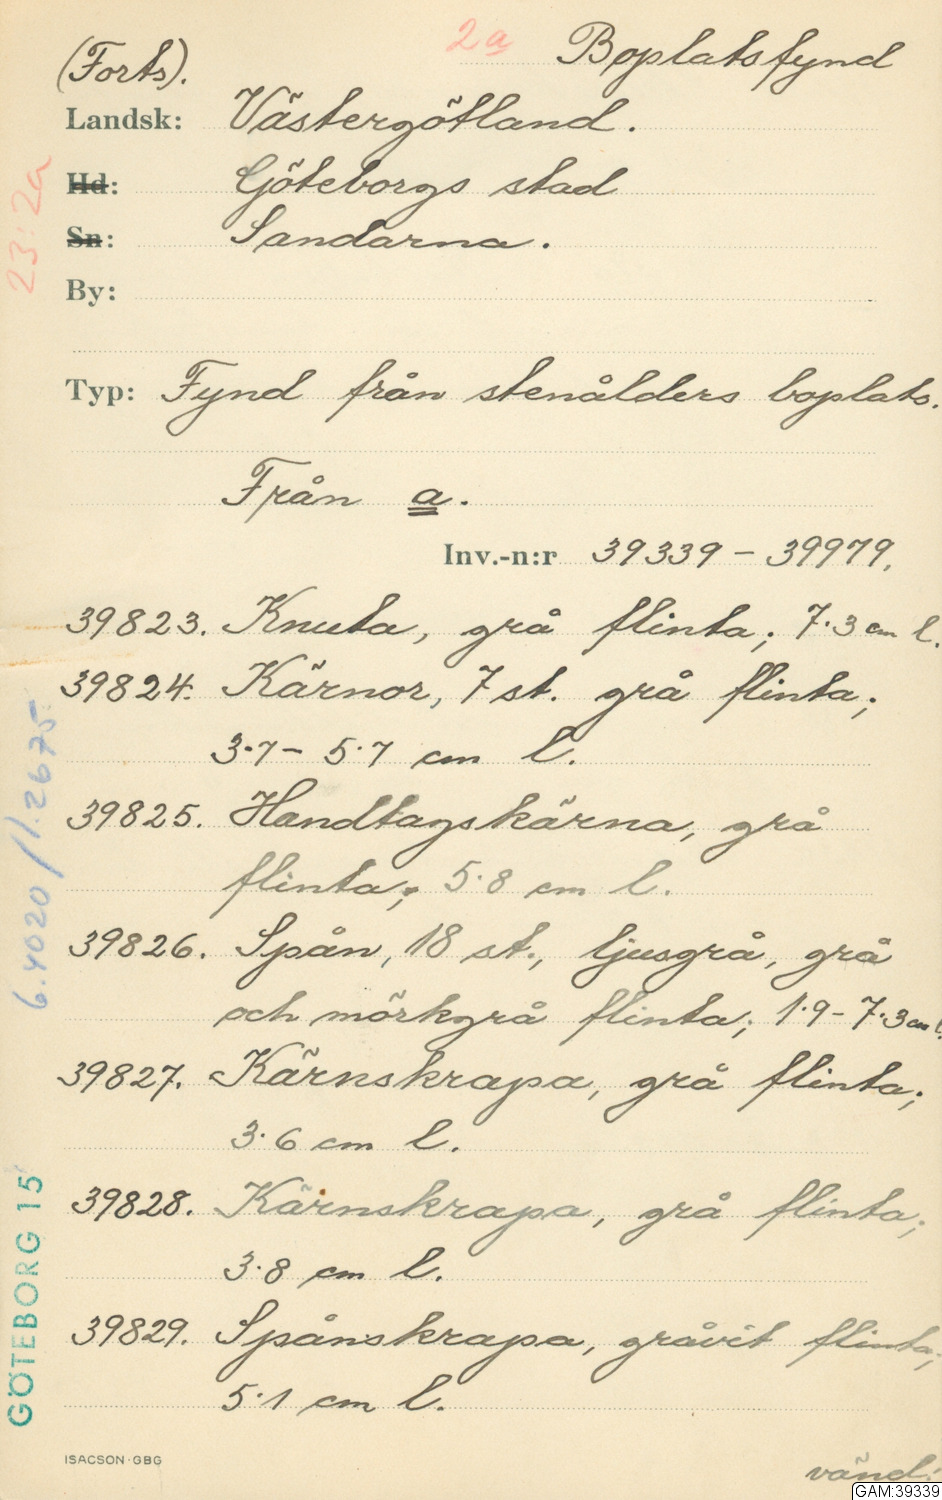 2a Boplatsfynd
(Forts).
Landsk: Västergötland.
Hd: Göteborgs stad
Sn: Sandarna.
By:
Typ: Fynd från stenålders boplats.
Från a.
Inv.-n:r 39339 - 39979.
39823. Knuta, grå flinta; 7.3 cm l.
39824. Kärnor, 7 st. grå flinta;
3.7 - 5.7 cm l.
39825. Handtagskärna, grå
flinta; 5.8 cm l.
39826. Spån, 18 st., ljusgrå, grå
och mörkgrå flinta; 1.9 - 7.3 cm l.
39827. Kärnskrapa, grå flinta;
3.6 cm l.
39828. Kärnskrapa, grå flinta;
3.8 cm l.
39829. Spånskrapa, gråvit flinta;
5.1 cm l.
ISACSON·GBG
vänd!
GAM:39339
23:2a
6.4020 / 1.2675.
GÖTEBORG 15